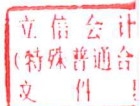 立信会计
(特殊普通合
文件